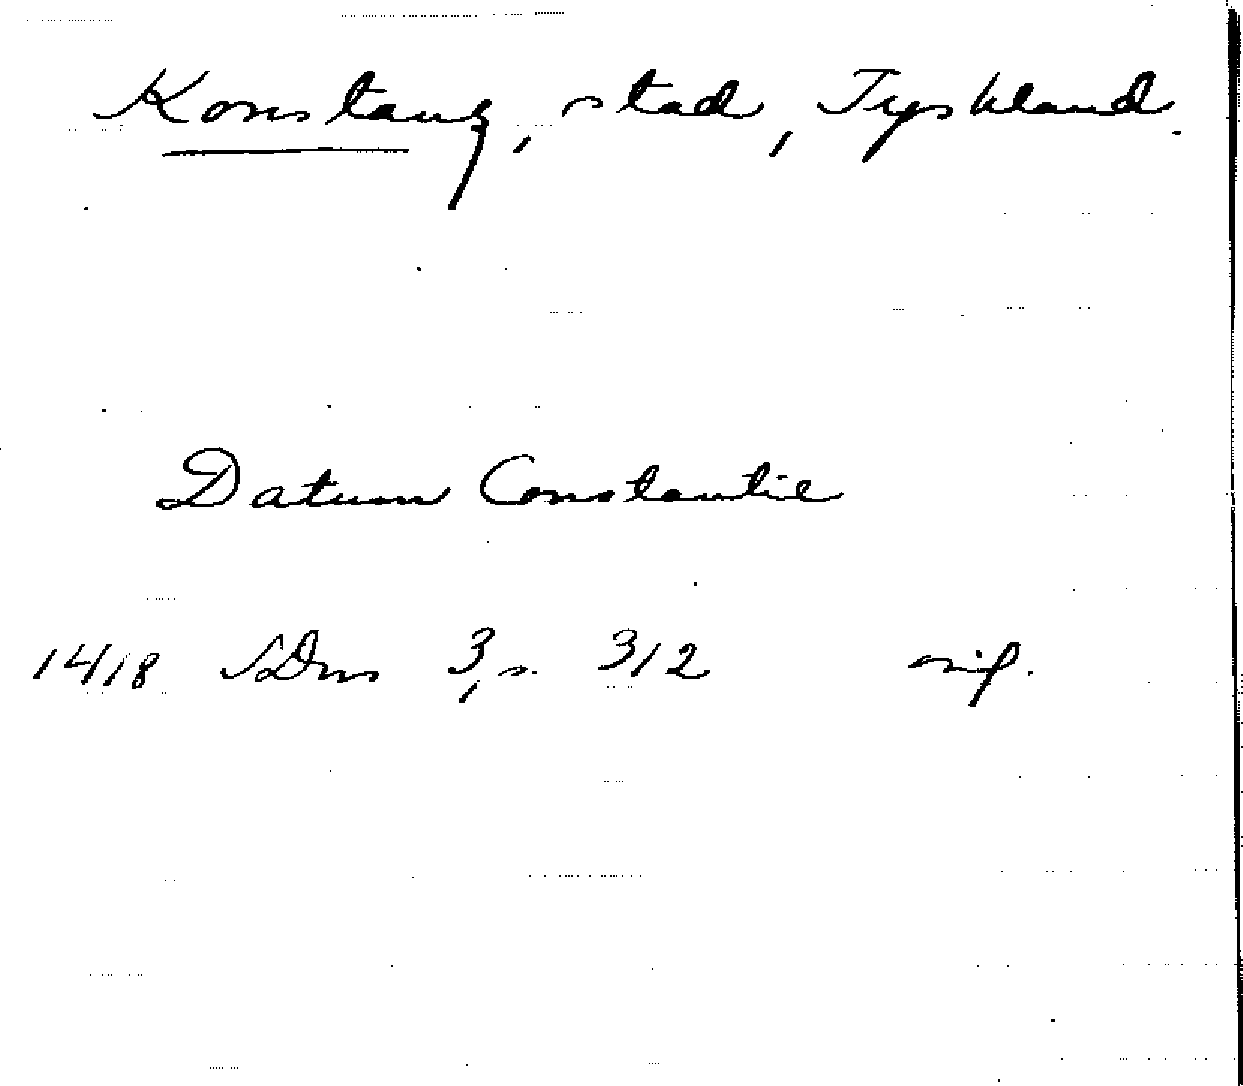 Konstanz, stad, Tyskland.
Datum Constantie
1418 SDns 3, s. 312 mif.